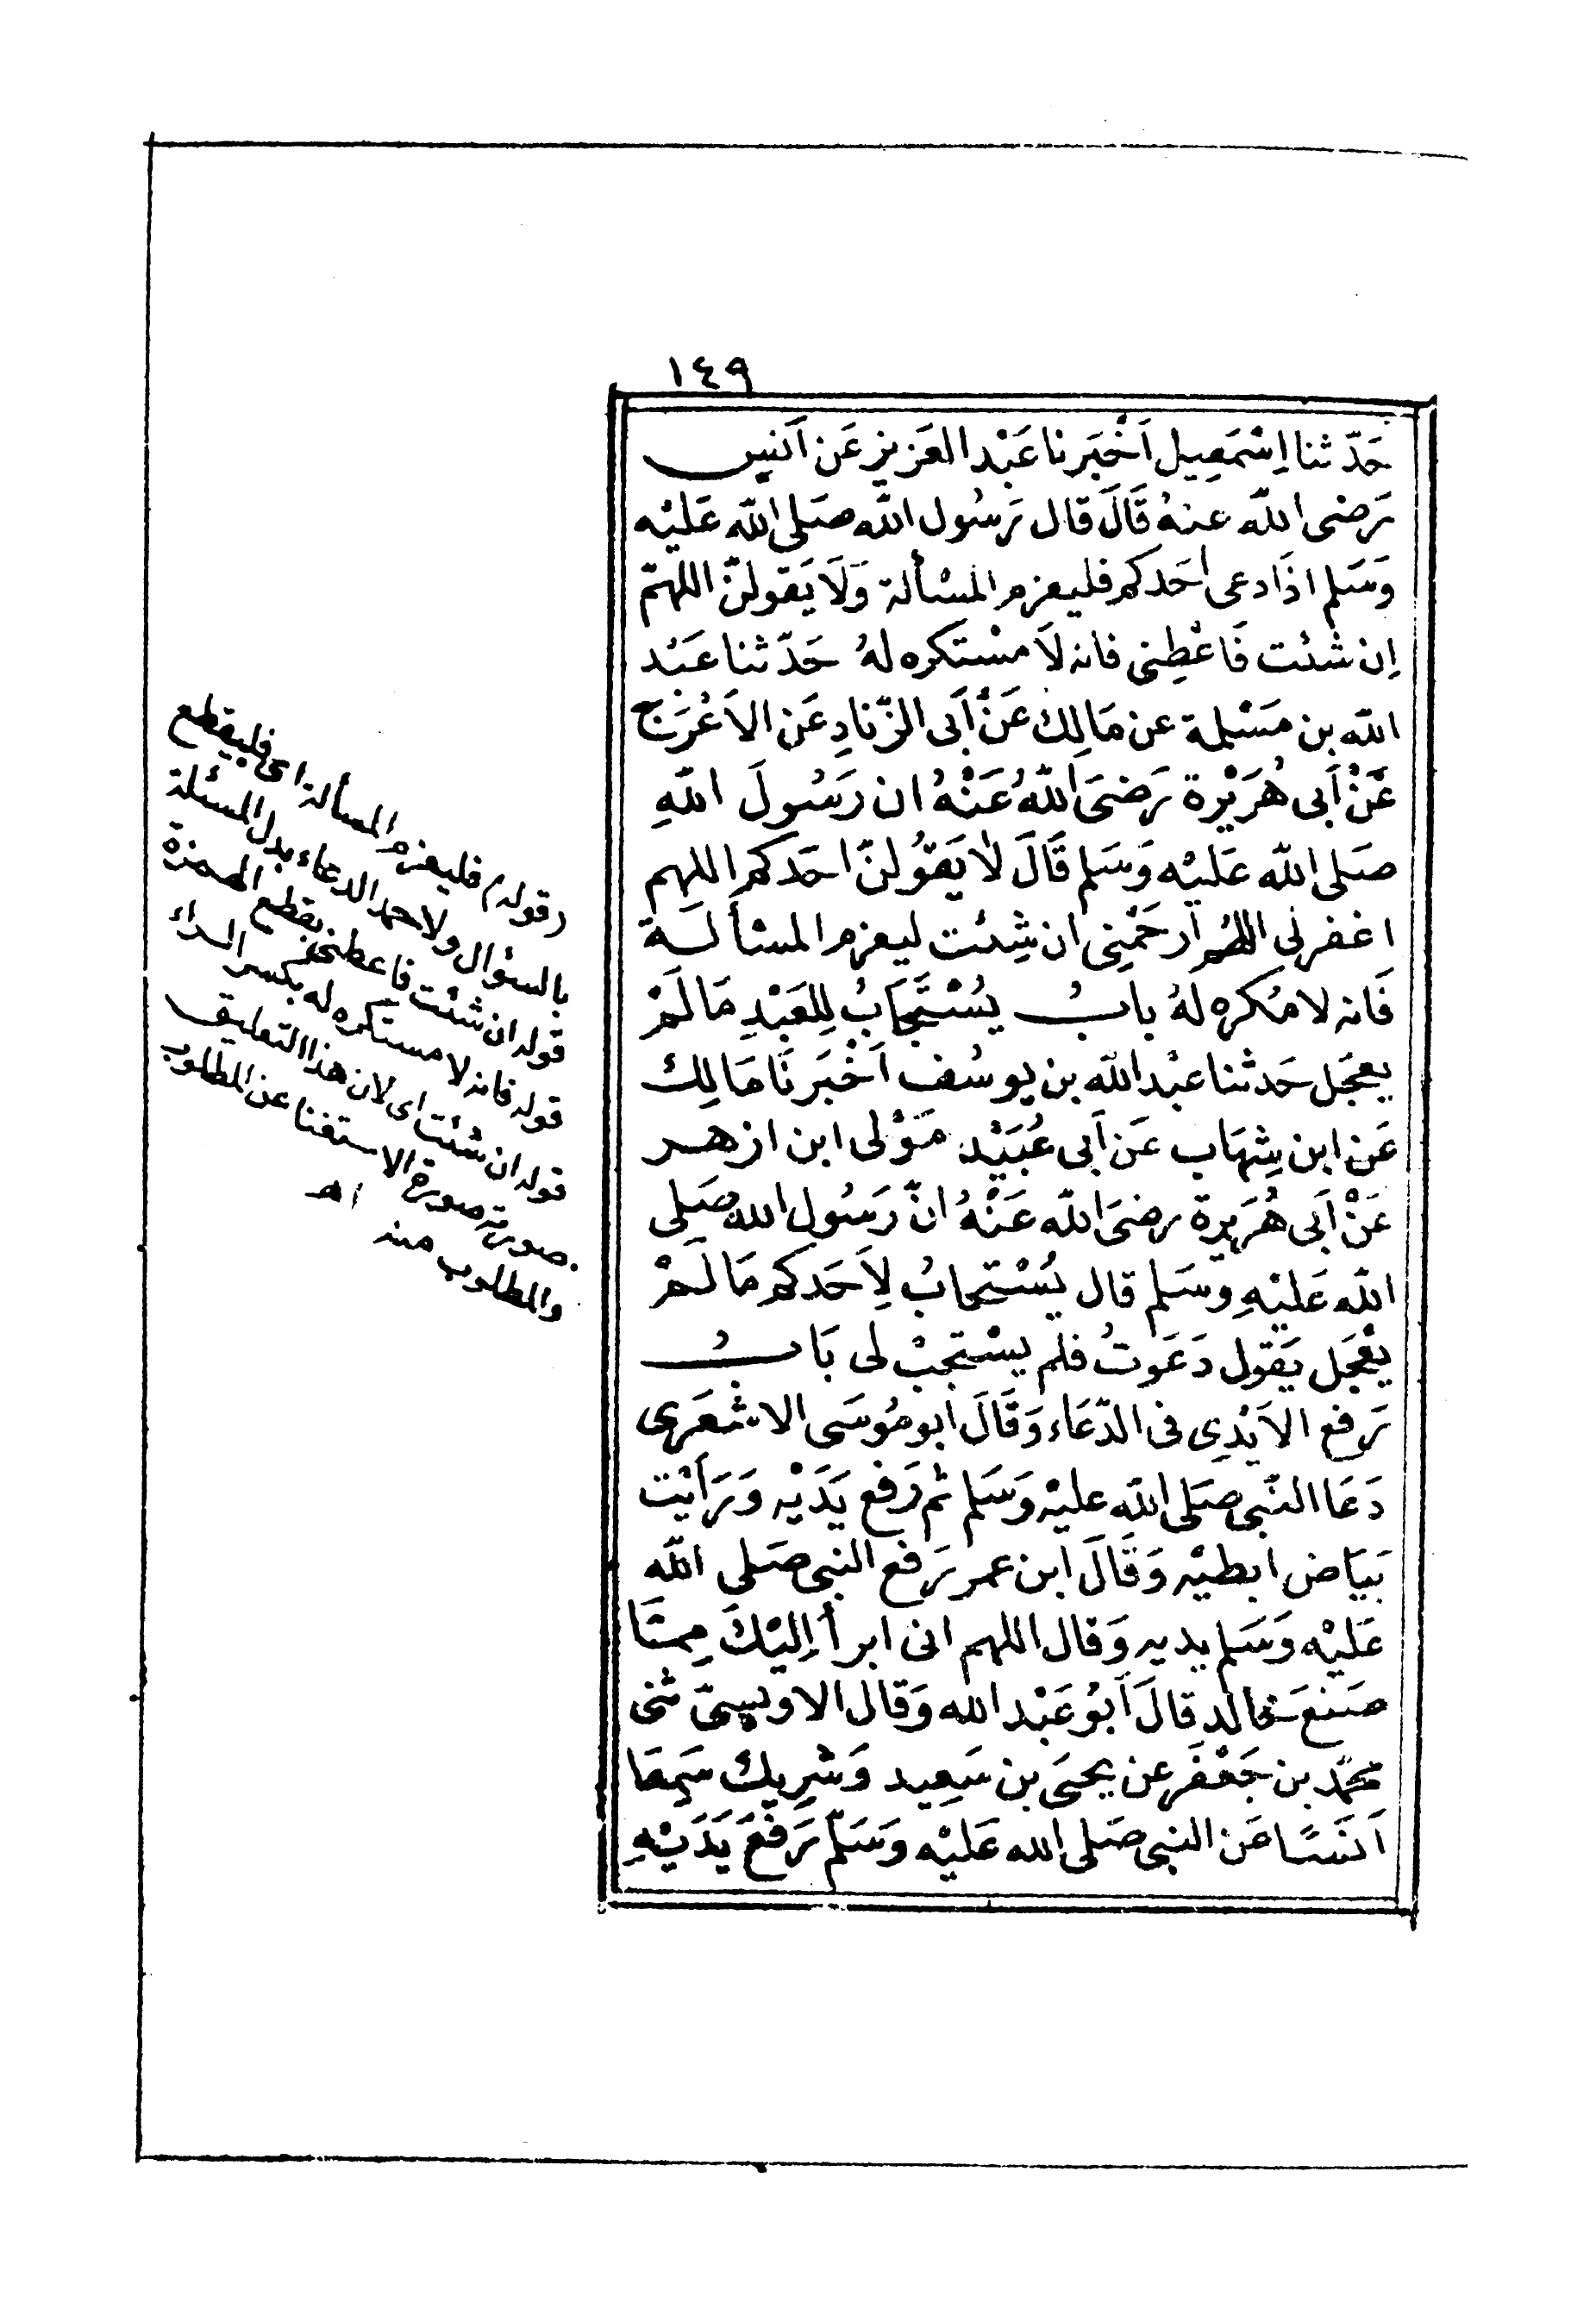 ١٤٩
حَدّثنا اِسْمَعِيل اَخْبَرنا عَبْد العَزيز عَن اَنَسٍ
رَضى الله عنهُ قَالَ قال رَسُول الله صَلى الله عَليْه
وَسَلم اذَا دعى احَدكم فليعزم المسْألة وَلَا يَقولنّ اللهمّ
اِن شئت فَاعْطِنى فانه لَا مسْتكره لهُ حَدّثنا عَبْد
الله بن مَسْلمة عن مَالِك عَنْ اَبى الزّنادِ عَن الاَعْرَج
عَنْ اَبى هُرَيْرة رَضىَ اللهُ عَنْهُ ان رَسُولَ اللهِ
صَلى الله عَليْه وَسَلم قَالَ لا يَقوُلنّ احَدكم اللهم
اغفرلى اللهم ارحَمْنِى ان شِئت ليعزم المسْألـة
فَانه لا مُكره لهُ بابُ يُسْتَجَابُ لِلعَبْدِ مَا لَمْ
يعجَل حَدثنا عبْد الله بن يوسُف اَخْبَرنَا مَالِك
عَن ابن شِهَاب عَن اَبى عُبَيْد مَوْلى ابن ازهـر
عَنْ اَبى هُرَيرة رضىَ الله عَنْهُ انّ رَسُول الله صَلى
الله عَليْهِ وسَلم قال يُسْتجابُ لِاَحَدكم مَا لَـمْ
يعْجَل يَقول دَعَوتُ فلم يسْتجبْ لى بَابُ
رَفع الاَيْدِى فى الدّعَاء وَقَالَ ابو مُوسَى الاشعَرى
دَعَا النّبى صَلى الله عليْه وَسَلم ثم رَفع يَدَيْه وَرَاَيْت
بَيَاض ابطيْه وَقَالَ ابن عمر رَفع النبى صَلى الله
عَليْه وَسَلم يديه وَقال اللهم انى ابرأ اِليْكَ مِمّا
صَنعَ خالد قالَ اَبُو عَبْد الله وَقال الاويسىّ ثنى
محمّد بن جَعْفَر عن يحيَى بن سَعِيد وَشرِيك سَمِعَا
اَنسًا عَن النبى صَلى الله عَليْه وَسَلّم رَفعَ يَدَيْهِ
(قوله) فليعزم المسألة اى فليقطع
بالسؤال ولاحمد الدعاء بدل المسئلة
قوله ان شئت فاعطنى بقطع الهمزة
قوله فانه لا مستكره له بكسر الـراء
قوله ان شئت اى لان هذا التعليق
صورته صورة الاستغنا عن المطلوب
والمطلوب منه اهـ